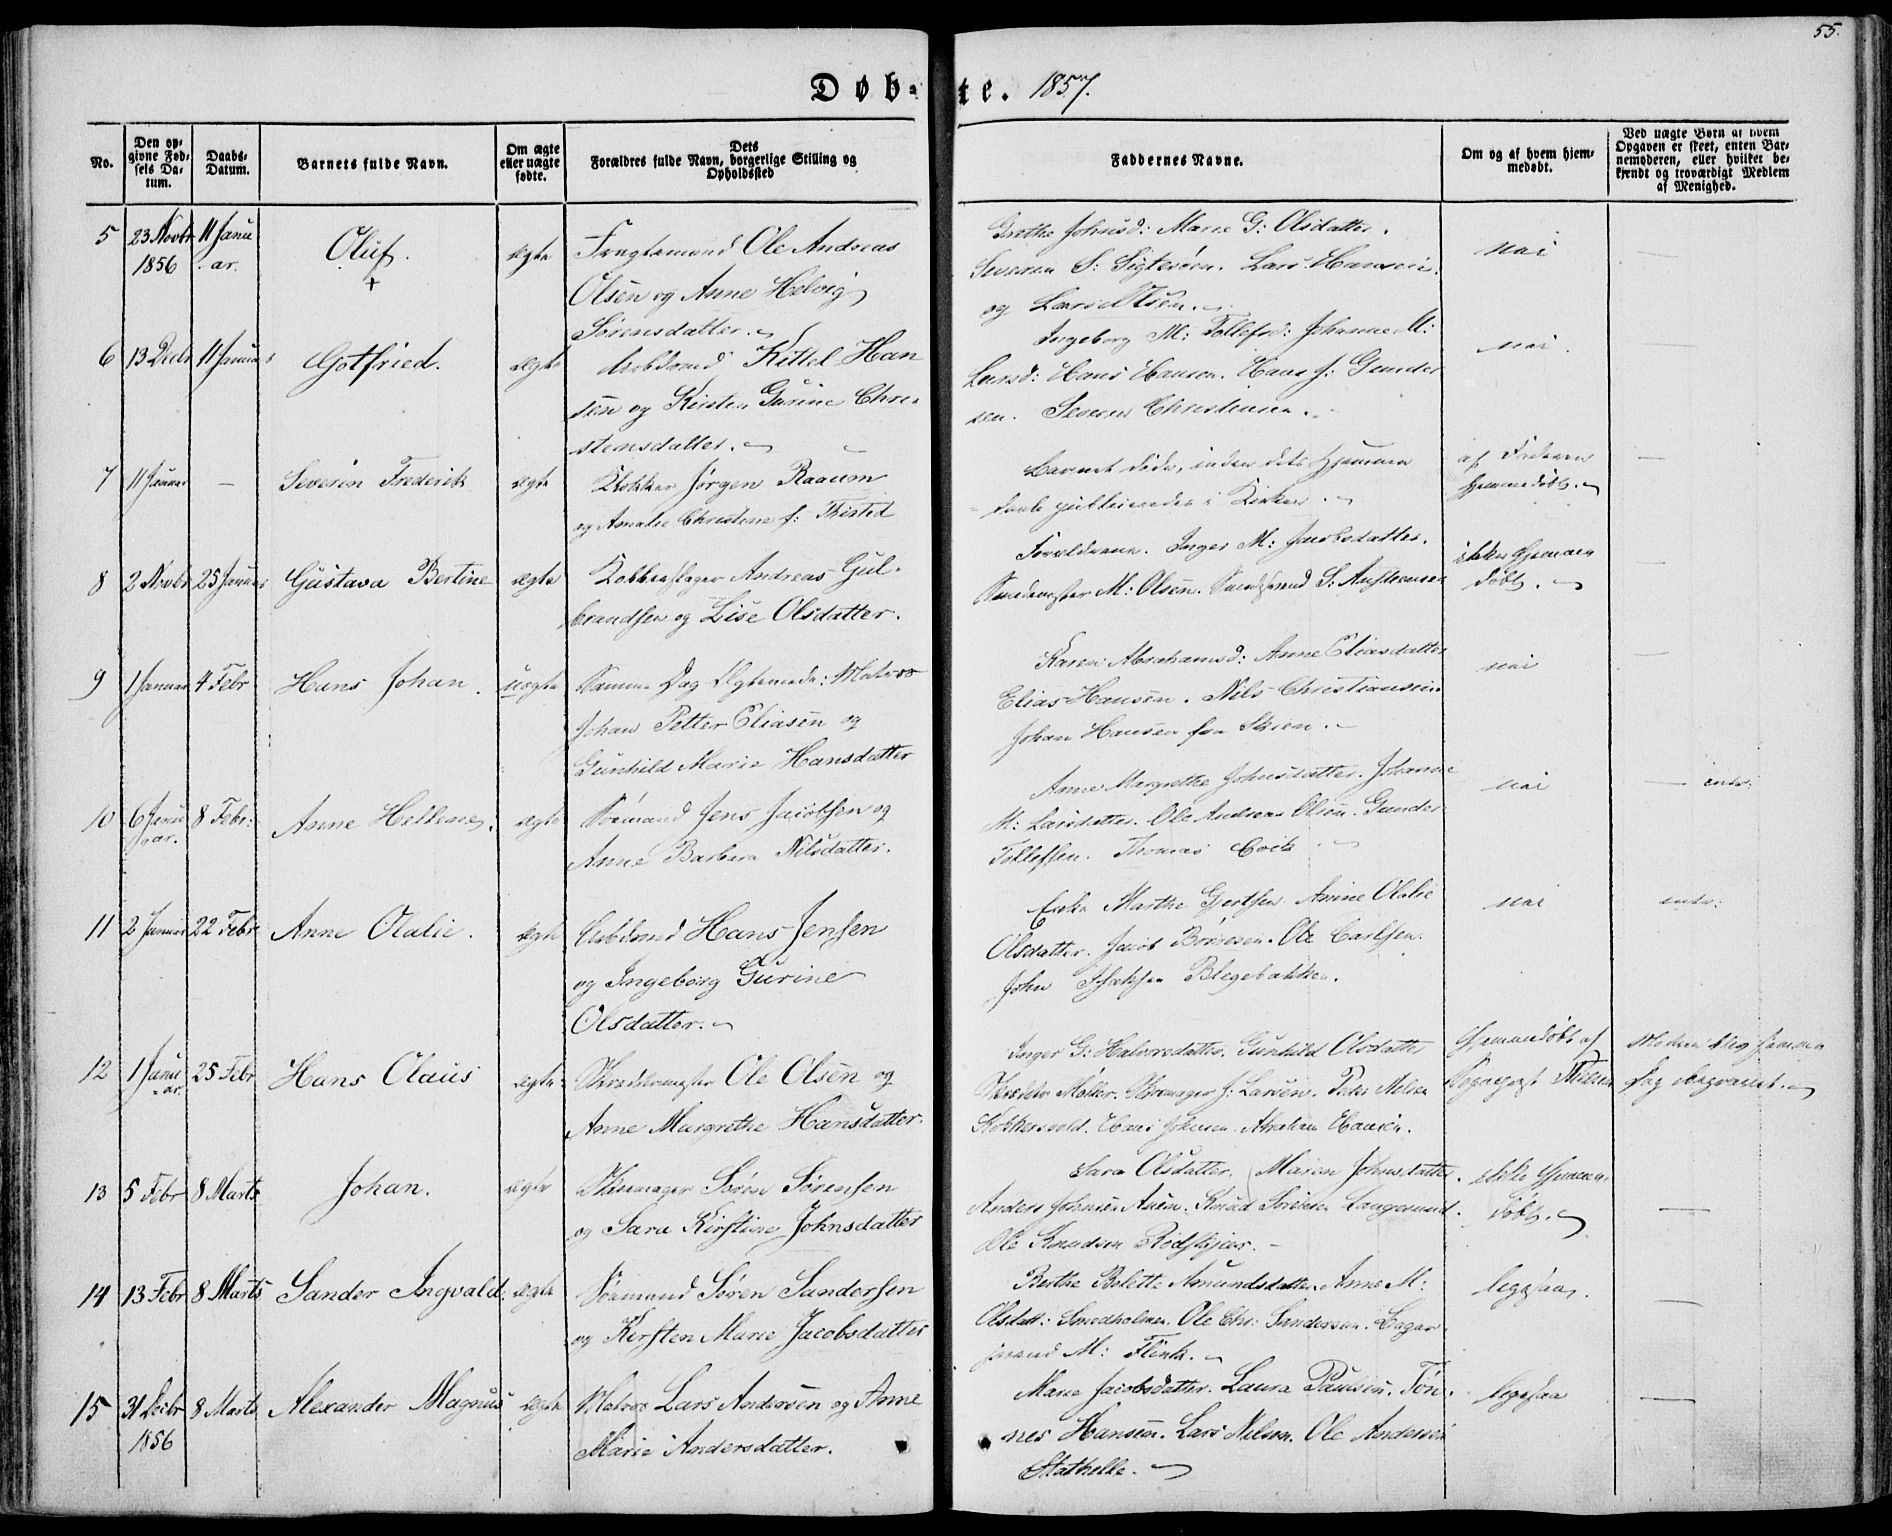 55.
Døb- te. 1857.
No.
Den opgivne Fødsels Datum.
Daabs-Datum.
Barnets fulde Navn.
Om ægte eller uægte fødte.
Dets Forældres fulde Navn, borgerlige Stilling og Opholdssted
Faddernes Navne.
Om og af hvem hjemmedøbt.
Ved uægte Børn af hvem Opgaven er skeet, enten Barnemoderen, eller hvilket bekjendt og troværdigt Medlem af Menighed.
5 23 Novbr 1856 11 Januar. Oluf. + ægte
Ole Andreas
Olsen og Anne Helvig
Sørensdatter.
Grethe Johnsd: Marie G: Olsdatter.
Lars Hansen.
og Lars Olsen.
nei
6 13 Decbr 11 Januar Gotfried. ægte
Kittel Han
sen og Kirsten Gurine Chri
stensdatter.
Ingeborg M: Tollefsd: Johanne M:
Larsd: Hans Hansen. Hans J: Gunder
sen. Severin Christensen.
nei.
7 11 Januar — Severin Frederik ægte
Klokker Jørgen Raaum
og Amalie Christine f: Thisted
Barnet døde, inden dets Hjemme
daab publiceredes i Kirken.
af Faderen
hjemmedøbt.
8 2 Novbr 25 Januar Gustava Bertine ægte
Kobberslager Andreas Gul-
brandsen og Lise Olsdatter.
Forældrene. Inger M: Jacobsdatter.
M: Olsen.
ikke hjemme
døbt.
9 1 Januar 4 Febr Hans Johan. uægte
Samme Dag Ægteviede: Matros
Johan Petter Eliasen og
Gunhild Marie Hansdatter
Karen Abrahamsd: Anne Eliasdatter
Elias Hansen. Nils Christiansen
Johan Hansen fra Skien.
nei
10 6 Januar. 8 Febr: Anne Hellene. ægte
Sømand Jens Jacobsen og
Anne Barbara Nilsdatter.
Anne Margrethe Johnsdatter. Johanne
M: Larsdatter. Ole Andreas Olsen. Gunder
Tollefsen. Thomas
nei
11 2 Januar 22 Febr Anne Olalie. ægte
Hans Jensen
og Ingeborg Gurine
Olsdatter.
Enke Marthe Gjertsen Amine Olalie
Olsdatter. Jacob Børresen. Ole Carlsen.
John Isaksen Blegebakken.
nei
12 1 Januar. 25 Febr Hans Olaus ægte
Ole Olsen og
Anne Margrethe Hansdatter.
Inger G: Halvorsdatter. Gunhild Olsdatter
Møller. Skomager J: Larsen.
Hans Johnsen. Abraham Hansen.
Hjemmedøbt af
Sognepræst Nielsen
Moderen blev samme
Dag begravet.
13 5 Febr 8 Marts Johan. ægte
Skomager Søren Sørensen
og Sara Kirstine Johnsdatter
Sara Olsdatter. Maren Johnsdatter.
Anders Johnsen Aasen. Knud Sørensen Langesund.
Ole Knudsen Rødskjær.
ikke hjemme
døbt.
14 13 Febr 8 Marts Sander Ingvald. ægte
Sømand Søren Sandersen
og Kirsten Marie Jacobsdatter
Berthe Bolette Amundsdatter. Anne M:
Olsdatt: Smedholmen. Ole Chr: Sandersen.
M: Flink.
ligesaa.
15 31 Decbr 1856 8 Marts Alexander Magnus ægte
Matros Lars Andersen og Anne
Marie Andersdatter.
Marie Jacobsdatter. Laura Paulsen. Tøn-
nes Hansen. Lars Nilsen. Ole Andersen
Stathelle.
ligesaa